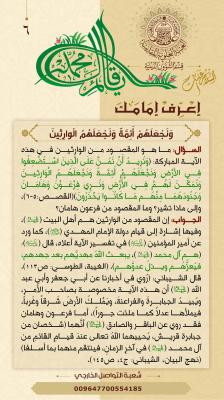 ٦
قائم آل محمد
إعرف إمامك
وَنَجْعَلَهُمْ أَئِمَّةً وَنَجْعَلَهُمُ الْوَارِثِينَ
السؤال: ما هو المقصود من الوارثين في هذه
الآية المباركة: (وَنُرِيدُ أَنْ نَمُنَّ عَلَى الَّذِينَ اسْتُضْعِفُوا
فِي الْأَرْضِ وَنَجْعَلَهُمْ أَئِمَّةً وَنَجْعَلَهُمُ الْوَارِثِينَ
وَنُمَكِّنَ لَهُمْ فِي الْأَرْضِ وَنُرِيَ فِرْعَوْنَ وَهَامَانَ
وَجُنُودَهُمَا مِنْهُمْ مَا كَانُوا يَحْذَرُونَ)(القصص:٥-٦)،
وإلى ماذا تشير؟ وما المقصود من فرعون هامان؟
الجواب: إن المقصود من الوارثين هم أهل البيت
وفيها إشارة إلى قيام دولة الإمام المهدي، كما ورد
عن أمير المؤمنين في تفسير الآية أعلاه، قال
(هم آل محمد، يبعث الله مهديهم بعد جهدهم،
فيعزهم ويذل عدوهم)، (الغيبة، الطوسي: ص١١٣).
قال الشيباني: (روي في أخبارنا عن أبي جعفر وأبي عبد
الله أن هذه الآية مخصوصة بصاحب الأمر،
ويبيد الجبابرة والفراعنة، ويملك الأرض شرقاً وغرباً،
فيملأها عدلاً كما ملئت جوراً)، أما فرعون وهامان
فقد روي عن الباقر والصادق (أنهما شخصان من
جبابرة قريش، يحييهما الله تعالى عند قيام القائم من
آل محمد في آخر الزمان، فينتقم منهما بما أسلفا)
(نهج البيان، الشيباني: ج٤، ص١٤٥).
شعبة التواصل الخارجي
009647700554185